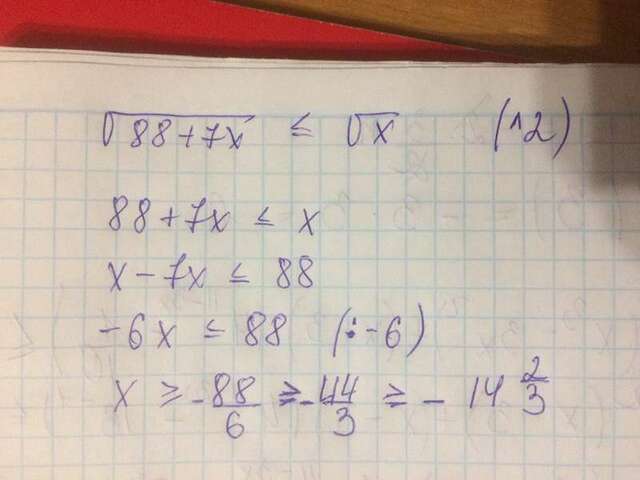 √88+7x ≤ √x (^2)
88+7x ≤ x
x-7x ≤ 88
-6x ≤ 88 (:-6)
x ≥ -88/6 ≥ -44/3 ≥ - 14 2/3